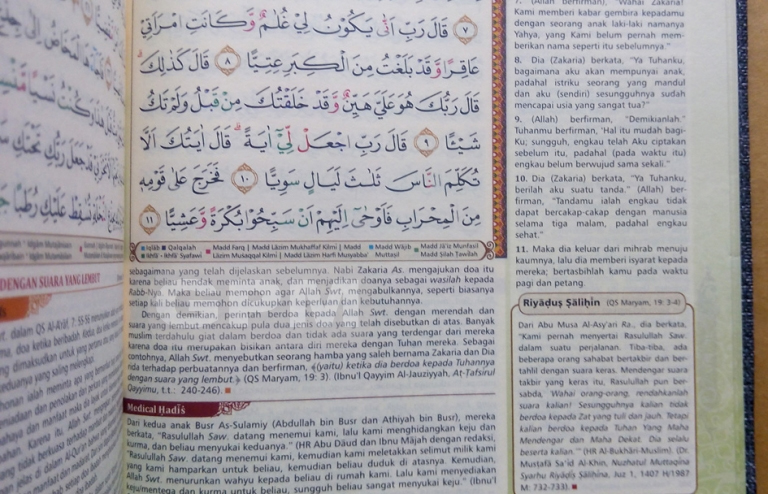 قَالَ رَبِّ أَنَّىٰ يَكُونُ لِي غُلَٰمٌ وَكَانَتِ امْرَأَتِي ٧
عَاقِرًا وَقَدْ بَلَغْتُ مِنَ الْكِبَرِ عِتِيًّا ٨ قَالَ كَذَٰلِكَ
قَالَ رَبُّكَ هُوَ عَلَيَّ هَيِّنٌ وَقَدْ خَلَقْتُكَ مِنْ قَبْلُ وَلَمْ تَكُ
شَيْئًا ٩ قَالَ رَبِّ اجْعَلْ لِّي آيَةً ۚ قَالَ آيَتُكَ أَلَّا
تُكَلِّمَ النَّاسَ ثَلَٰثَ لَيَالٍ سَوِيًّا ١٠ فَخَرَجَ عَلَىٰ قَوْمِهِ
مِنَ الْمِحْرَابِ فَأَوْحَىٰ إِلَيْهِمْ أَنْ سَبِّحُوا بُكْرَةً وَعَشِيًّا ١١
Iqlāb Qalqalah Madd Farq | Madd Lāzim Mukhaffaf Kilmi | Madd Madd Wājib Madd Jā'iz Munfasil
Ikhfā' - Ikhfā' Syafawi Lāzim Musaqqal Kilmi | Madd Lāzim Harfi Musyabba' Muttasil Madd Silah Tawilah
sebagaimana yang telah dijelaskan sebelumnya. Nabi Zakaria As. mengajukan doa itu
karena beliau hendak meminta anak, dan menjadikan doanya sebagai wasilah kepada
Rabb-Nya. Maka beliau memohon agar Allah Swt. mengabulkannya, seperti biasanya
setiap kali beliau memohon dicukupkan keperluan dan kebutuhannya.
Dengan demikian, perintah berdoa kepada Allah Swt. dengan merendah dan
suara yang lembut mencakup pula dua jenis doa yang telah disebutkan di atas. Banyak
muslim terdahulu giat dalam berdoa dan tidak ada suara yang terdengar dari mereka
karena doa itu merupakan bisikan antara diri mereka dengan Tuhan mereka. Sebagai
contohnya, Allah Swt. menyebutkan seorang hamba yang saleh bernama Zakaria dan Dia
rida terhadap perbuatannya dan berfirman, (yaitu) ketika dia berdoa kepada Tuhannya
dengan suara yang lembut. (QS Maryam, 19: 3). (Ibnu'l Qayyim Al-Jauziyyah, At-Tafsirul
Qayyimu, t.t.: 240-246).
Medical Ḥadīś
Dari kedua anak Busr As-Sulamiy (Abdullah bin Busr dan Athiyah bin Busr), mereka
berkata, "Rasulullah Saw. datang menemui kami, lalu kami menghidangkan keju dan
kurma, dan beliau menyukai keduanya." (HR Abu Dāud dan Ibnu Mājah dengan redaksi,
"Rasulullah Saw. datang menemui kami, kemudian kami meletakkan selimut milik kami
yang kami hamparkan untuk beliau, kemudian beliau duduk di atasnya. Kemudian,
Allah Swt. menurunkan wahyu kepada beliau di rumah kami. Lalu kami menyediakan
keju/mentega dan kurma untuk beliau, sungguh beliau sangat menyukai keju." (Ibnu'l
7. (Allah berfirman), "Wahai Zakaria!
Kami memberi kabar gembira kepadamu
dengan seorang anak laki-laki namanya
Yahya, yang Kami belum pernah mem-
berikan nama seperti itu sebelumnya."
8. Dia (Zakaria) berkata, "Ya Tuhanku,
bagaimana aku akan mempunyai anak,
padahal istriku seorang yang mandul
dan aku (sendiri) sesungguhnya sudah
mencapai usia yang sangat tua?"
9. (Allah) berfirman, "Demikianlah."
Tuhanmu berfirman, "Hal itu mudah bagi-
Ku; sungguh, engkau telah Aku ciptakan
sebelum itu, padahal (pada waktu itu)
engkau belum berwujud sama sekali."
10. Dia (Zakaria) berkata, "Ya Tuhanku,
berilah aku suatu tanda." (Allah) ber-
firman, "Tandamu ialah engkau tidak
dapat bercakap-cakap dengan manusia
selama tiga malam, padahal engkau
sehat."
11. Maka dia keluar dari mihrab menuju
kaumnya, lalu dia memberi isyarat kepada
mereka; bertasbihlah kamu pada waktu
pagi dan petang.
Riyāḍuṣ Ṣāliḥin (QS Maryam, 19: 3-4)
Dari Abu Musa Al-Asy'ari Ra., dia berkata,
"Kami pernah menyertai Rasulullah Saw.
dalam suatu perjalanan. Tiba-tiba, ada
beberapa orang sahabat bertakbir dan ber-
tahlil dengan suara keras. Mendengar suara
takbir yang keras itu, Rasulullah pun ber-
sabda, Wahai orang-orang, rendahkanlah
suara kalian! Sesungguhnya kalian tidak
berdoa kepada Zat yang tuli dan jauh. Tetapi
kalian berdoa kepada Tuhan Yang Maha
Mendengar dan Maha Dekat. Dia selalu
beserta kalian." (HR Al-Bukhāri-Muslim). (Dr.
Mustafā Sa'id Al-Khin, Nuzhatul Muttaqina
Syarhu Riyāḍis Ṣālihina, Juz 1, 1407 H/1987
M: 732-733).
DENGAN SUARA YANG LEMBUT